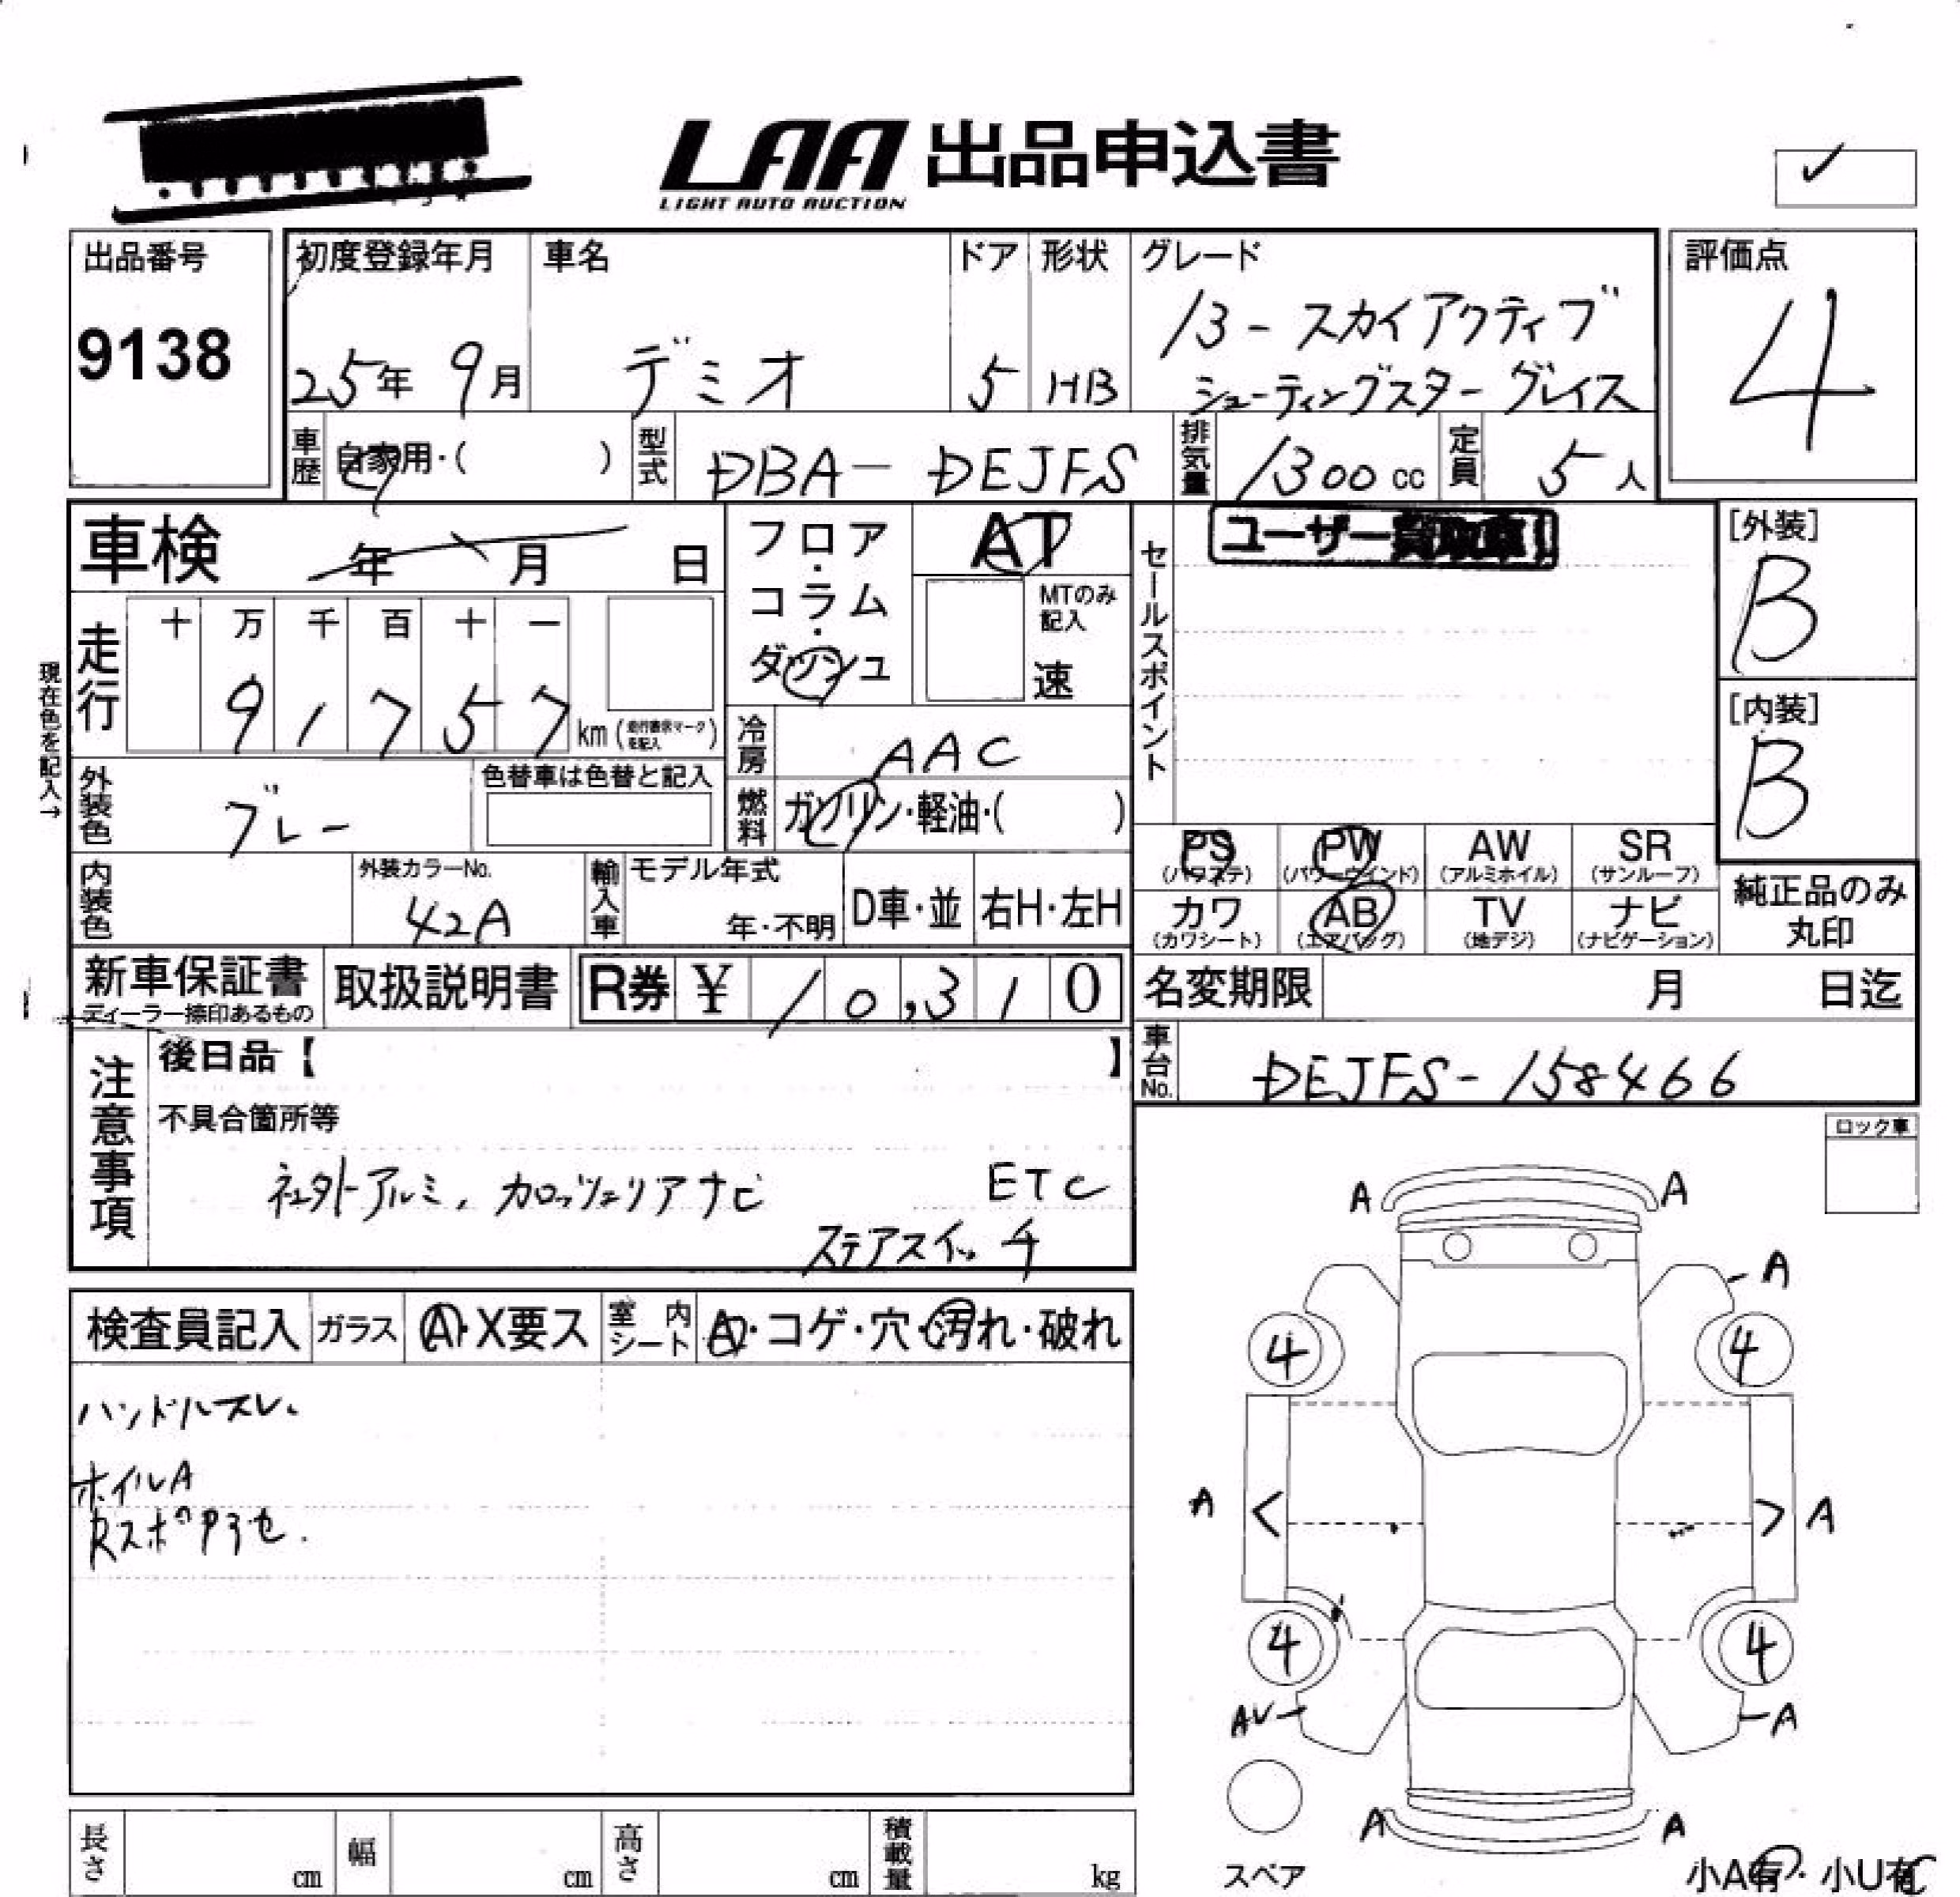 LAA 出品申込書
LIGHT AUTO AUCTION
出品番号
9138
初度登録年月
25年 9月
車名
デミオ
ドア
5
形状
HB
グレード
13-スカイアクティブ
シューティングスター グレイス
評価点
4
車歴
自家用・( )
型式
DBA-DEJFS
排気量
1300 cc
定員
5人
車検
年 月 日
フロア・コラム・ダッシュ
AT
MTのみ記入
速
セールスポイント
ユーザー買取車!
[外装]
B
[内装]
B
現在色を記入→
走行
十 万 千 百 十 一
9 1 7 5 7 km (走行書示マークを記入)
冷房
AAC
燃料
ガソリン・軽油・( )
外装色
グレー
色替車は色替と記入
PS (パワステ)
PW (パワーウインド)
AW (アルミホイル)
SR (サンルーフ)
カワ (カワシート)
AB (エアバッグ)
TV (地デジ)
ナビ (ナビゲーション)
純正品のみ丸印
内装色
外装カラーNo.
42A
輸入車
モデル年式
年・不明
D車・並
右H・左H
新車保証書
ディーラー捺印あるもの
取扱説明書
R券 ¥ 10,310
名変期限
月 日迄
車台No.
DEJFS-158466
注意事項
後日品【 】
不具合箇所等
社外アルミ、カロッツェリアナビ ETC
ステアスイッチ
ロック車
検査員記入
ガラス
A・X要ス
室内シート
A・コゲ・穴・汚れ・破れ
ハンドルスレ、
ホイルA
A A
A
4 4
A < > A
4 4
AV A
A A
スペア
長さ cm
幅 cm
高さ cm
積載量 kg
小A有・小U有